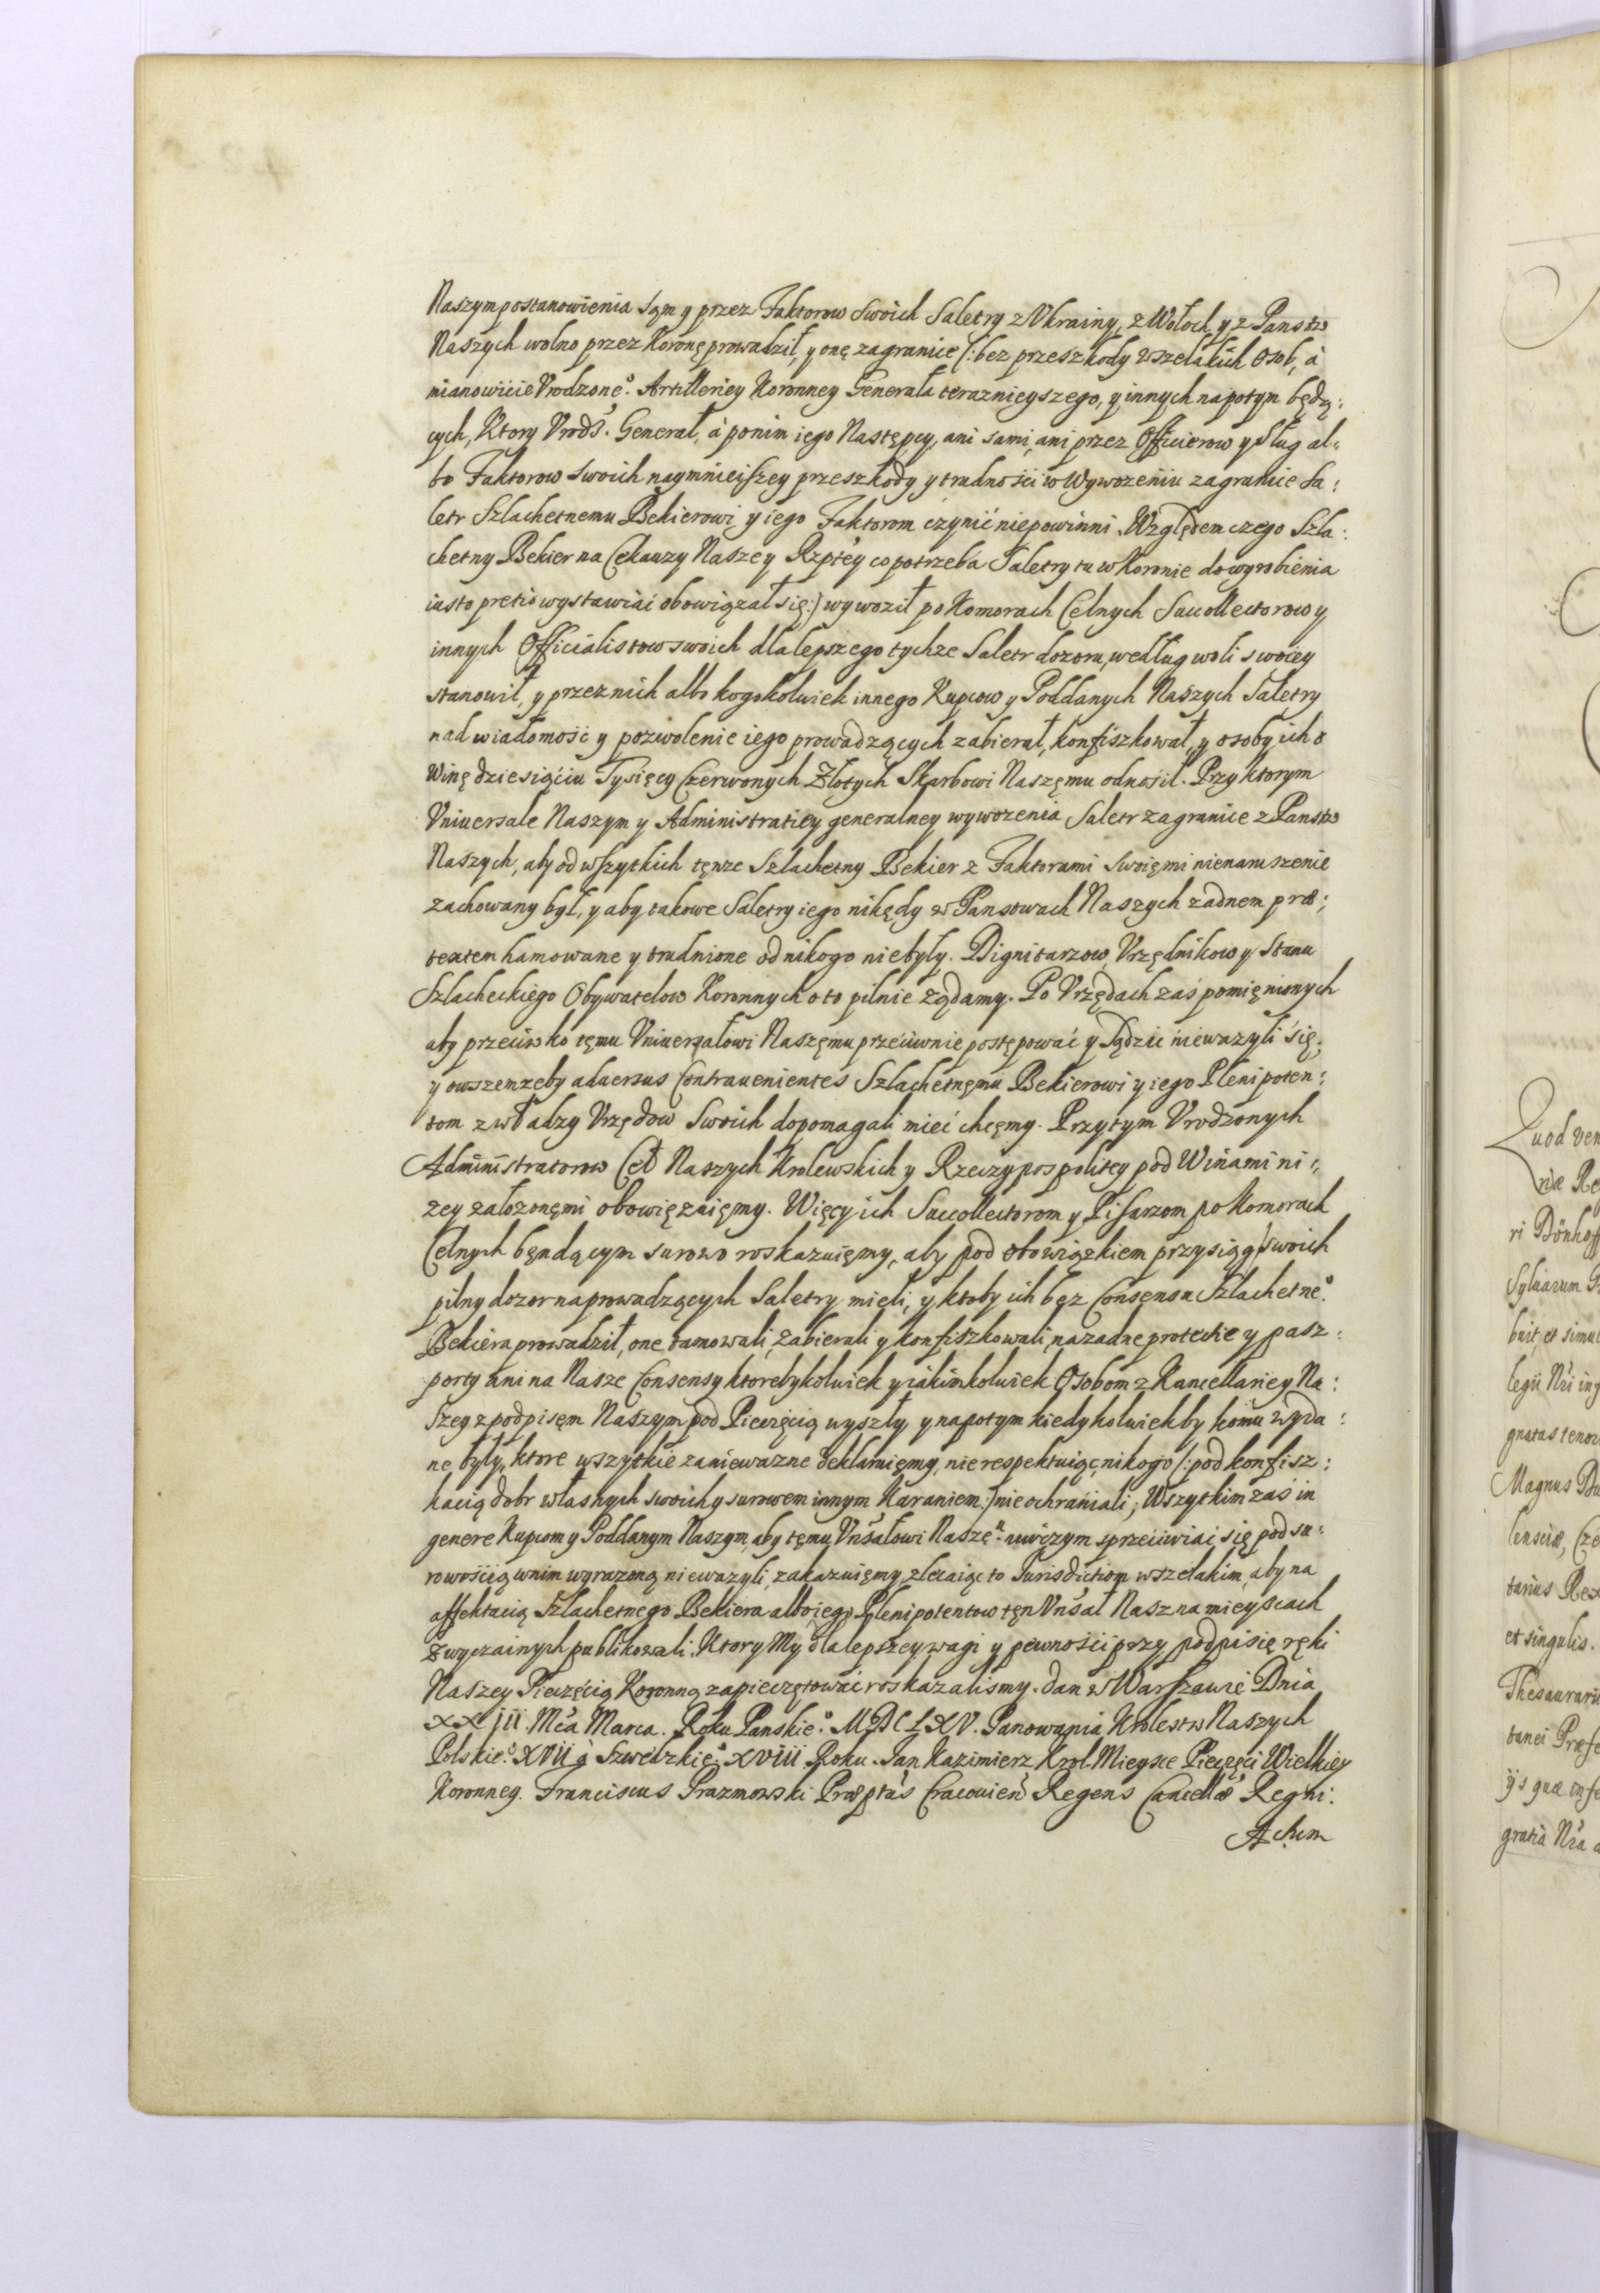 Naszym postanowienia sąm y przez Faktorow Swoich Saletry z Vkrainy, z Wołoch, y z Panstw
Naszych wolno przez Koronę prowadził, y onę zagranice (: bez przeszkody wszelakich Osob, à
mianowicie Vrodzone°. Artilleriey Koronney Generała teraznieyszego, y innych napotym będą:
cych, Ktory Vrodź. Generał, à ponim iego Następcy, ani sami, ani przez Officierow y Sług al:
bo Faktorow swoich naymnieiszey przeszkody y trudności w Wywozeniu zagranice Sa:
letr Szlachetnemu Bekierowi y iego Faktorom czynić niepowinni. Względem czego Szla:
chetny Bekier na Cekauzy Naszey Rzptey co potrzeba Saletry tu w Koronie do wyrobienia
iusto pretio wystawiać obowiązał się:) wywoził po Komorach Celnych Succollectorow y
innych Officialistow swoich dla lepszego tychze Saletr dozoru, według woli swoiey
stanowił, y przez nich albo kogokolwiek innego Kupcow y Poddanych Naszych Saletry
nad wiadomość y pozwolenie iego prowadzących zabierał, konfiszkował, y osoby ich o
Winę dziesiąciu Tysięcy Czerwonych Złotych Skarbowi Naszęmu odnosił. Przy ktorym
Vniuersale Naszym y Administratiey generalney wywozenia Saletr zagranice z Panstw
Naszych, aby od wszytkich tęnze Szlachetny Bekier z Faktorami Swoięmi nienaruszenie
zachowany był, y aby takowe Saletry iego nikędy w Panstwach Naszych zadnem præ:
textem hamowane y trudnione od nikogo niebyły. Dignitarzow, Vrzędnikow y Stanu
Szlacheckiego Obywatelow Koronnych o to pilnie ządamy. Po Vrzędach zaś pomięnionych
aby przeciwko tęmu Vniuersałowi Naszęmu przeciwnie postępować y Sądzić niewazyli się,
y owszem zeby aduersus Contrauenientes Szlachetnęmu Bekierowi y iego Plenipoten:
tom z władzy Vrzędow Swoich dopomagali mieć chcęmy. Przytym Vrodzonych
Administratorow Ceł Naszych Krolewskich y Rzeczypospolitey pod Winami ni:
zey załozonęmi obowięzuięmy. Więcy ich Succollectorom y Pisarzom po Komorach
Celnych będącym surowo roskazuięmy, aby pod obowiązkiem przysiąg swoich
pilny dozor na prowadzących Saletry mieli, y ktoby ich bęz Consęnsu Szlachetne°.
Bekiera prowadził, one tamowali, zabierali y konfiszkowali, na zadne protectie y pasz:
porty ani na Nasze Consensy ktorebykolwiek y iakimkolwiek Osobom z Kancellariey Na:
szey z podpisęm Naszym pod Pieczęcią wyszły y napotym kiedykolwiekby komu wyda:
ne były, ktore wszytkie zaniewazne deklaruięmy, nie respektuiąc, nikogo (: pod konfisz:
kacią dobr własnych swoich y surowem innym Karaniem:) nie ochraniali; Wszytkim zaś in
genere Kupcom y Poddanym Naszym, aby tęmu Vnśałowi Naszę°. nawiczym sprzeciwiać się pod su:
rowością wnim wyrazoną niewazyli, zakazuięmy, zlecaiąc to Jurisdictiom wszelakim, aby na
affektacią Szlachetnego Bekiera albo iego Plenipotentow tęn Vnśał Nasz na mieyscach
Zwyczainych publikowali. Ktory My dla lepszey wagi y pewności przy podpisię ręki
Naszey Pieczęcią Koronną zapieczętować roskazaliśmy. Dan w Warszawie Dnia
XXiii. Mca Marca. Roku Panskie°. MDCLXV. Panowania Krolestw Naszych
Polskie°. XVII à Szwedzkie°. XVIII Roku. Jan Kazimierz Krol. Mieysce Pieczęci Wielkiey
Koronney. Franciscus Prazmowski Præptus Cracouien Regens Cancellæ Regni.